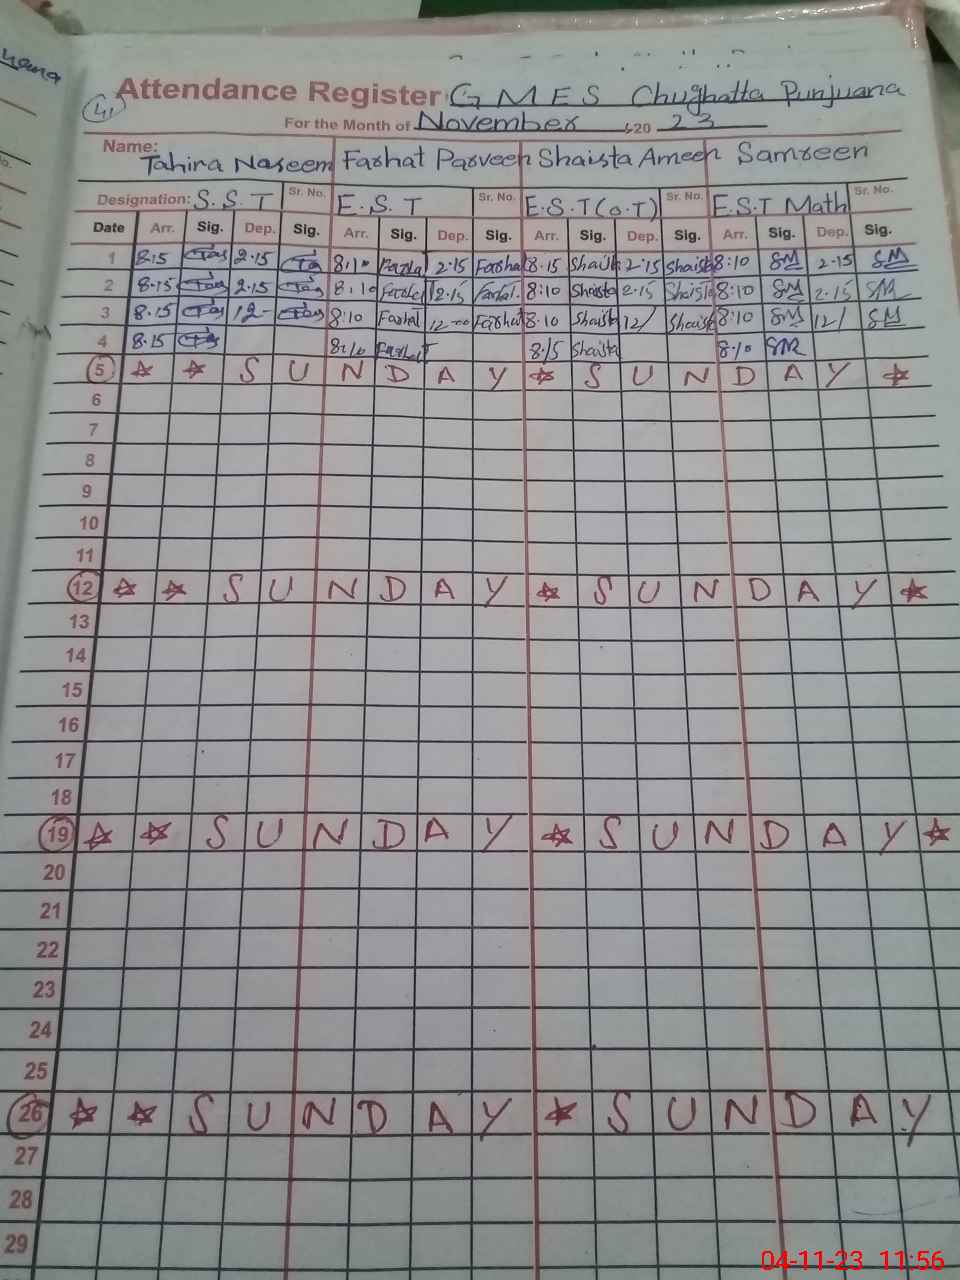 Attendance Register G M E S Chughatta Punjuana
41
For the Month of November 20 23
Name: Tahira Naseem Farhat Parveen Shaista Ameen Samreen
Designation: S.S.T Sr. No. E.S.T Sr. No. E.S.T(O.T) Sr. No. E.S.T Math Sr. No.
Date Arr. Sig. Dep. Sig. Arr. Sig. Dep. Sig. Arr. Sig. Dep. Sig. Arr. Sig. Dep. Sig.
1 8.15 2.15 8.10 Farhat 2.15 Farhat 8.15 Shaista 2.15 Shaista 8:10 SM 2.15 SM
2 8.15 2.15 8.10 Farhat 2.15 Farhat 8:10 Shaista 2.15 Shaista 8:10 SM 2.15 SM
3 8.15 12- 8:10 Farhat 12-00 Farhat 8.10 Shaista 12/ Shaista 8:10 SM 12/ SM
4 8.15 8:10 Farhat 8.15 Shaista 8.10 SM
5 ☆ ☆ S U N D A Y ☆ S U N D A Y ☆
6
7
8
9
10
11
12 ☆ ☆ S U N D A Y ☆ S U N D A Y ☆
13
14
15
16
17
18
19 ☆ ☆ S U N D A Y ☆ S U N D A Y ☆
20
21
22
23
24
25
26 ☆ ☆ S U N D A Y ☆ S U N D A Y
27
28
29
04-11-23 11:56